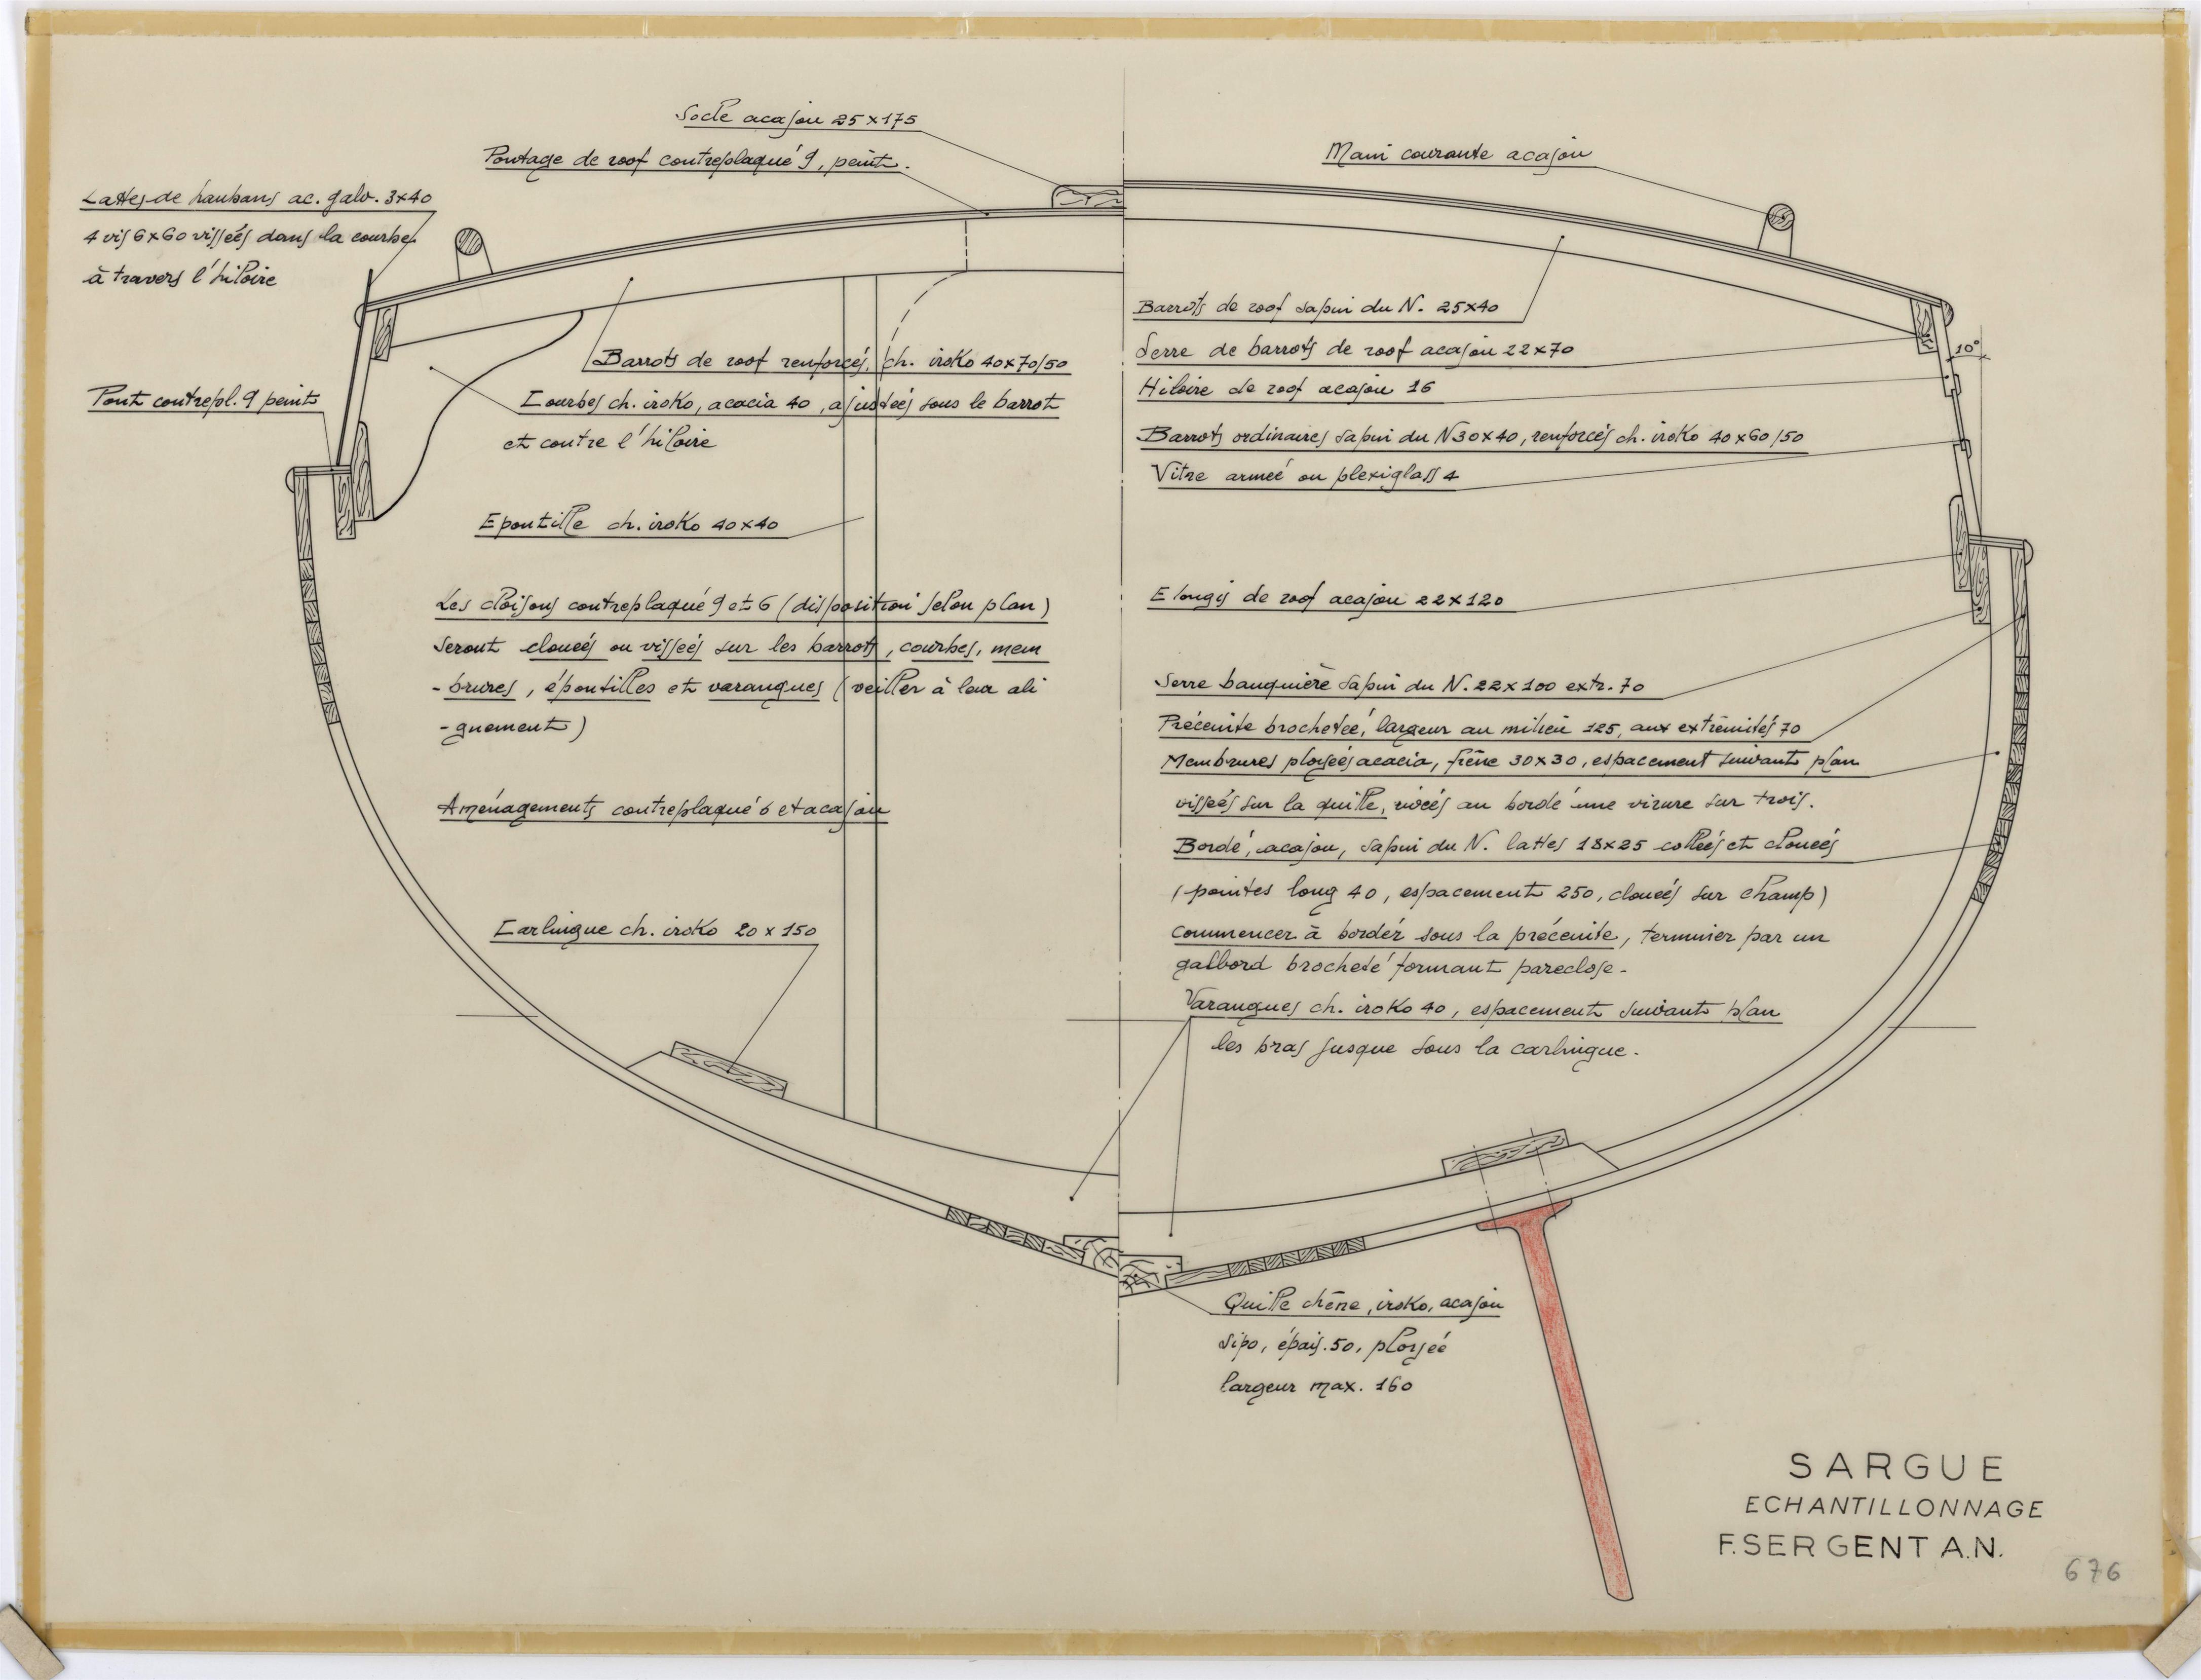 Socle acajou 25x175
Pontage de roof contreplaqué 9, peint.
Lattes de haubans ac. galv. 3x40
4 vis 6x60 vissées dans la courbe
à travers l'hiloire
Pont contrepl. 9 peint
Barrots de roof renforcés, ch. iroko 40x70/50
Courbes ch. iroko, acacia 40, ajustées sous le barrot
et contre l'hiloire
Epontille ch. iroko 40x40
Les cloisons contreplaqué 9 et 6 (disposition selon plan)
seront cloués ou vissées sur les barrots, courbes, mem
-brures, épontilles et varangues (veiller à leur ali
-gnement)
Aménagements contreplaqué 6 et acajou
Carlingue ch. iroko 20 x 150
Main courante acajou
Barrots de roof sapin du N. 25x40
Serre de barrots de roof acajou 22x70
10°
Hiloire de roof acajou 16
Barrots ordinaires sapin du N 30x40, renforcés ch. iroko 40x60/50
Vitre armée ou plexiglass 4
Elongis de roof acajou 22x120
Serre bauquière sapin du N. 22x100 extr. 70
Préceinte brochetée, largeur au milieu 125, aux extrémités 70
Membrures ployées acacia, frêne 30x30, espacement suivant plan
vissées sur la quille, rivées au bordé une virure sur trois.
Bordé, acajou, sapin du N. lattes 18x25 collées et clouées
(pointes long 40, espacement 250, cloués sur champ)
commencer à border sous la préceinte, terminer par un
galbord brocheté formant pareclose.
Varangues ch. iroko 40, espacement suivant plan
les bras jusque sous la carlingue.
Quille chêne, iroko, acajou
sipo, épais. 50, ployée
largeur max. 160
SARGUE
ECHANTILLONNAGE
F. SERGENT A.N.
676